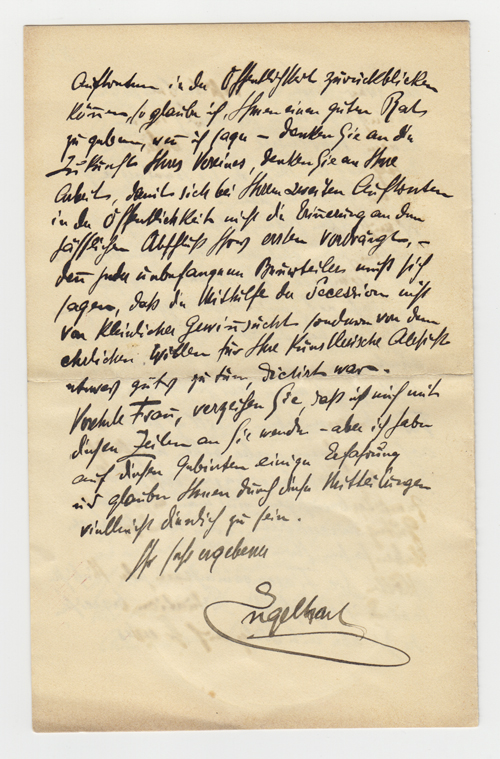 Auftreten in der Öffentlichkeit zurückblicken
können, so glaube ich Ihnen einen guten Rat
zu geben, wenn ich sage – denken Sie an die
Zukunft Ihres Vereines, denken Sie an Ihre
Arbeit, damit sich bei Ihrem zweiten Auftreten
in der Öffentlichkeit nicht die Erinnerung an den
hässlichen Abschluß Ihres ersten vordrängt, –
denn jeder unbefangene Beurteiler muß sich
sagen, daß die Mithilfe der Secession nicht
von kleinlicher Gewinnsucht sondern von dem
ehrlichen Willen für Ihre künstlerische Absicht
etwas gutes zu tun, dictirt war.
Verehrte Frau, verzeihen Sie, daß ich mich mit
diesen Zeilen an Sie wende – aber ich habe
auf diesen Gebieten einige Erfahrung
und glaube Ihnen durch diese Mitteilungen
vielleicht dienlich zu sein.
Ihr sehr ergebener
Engelhart